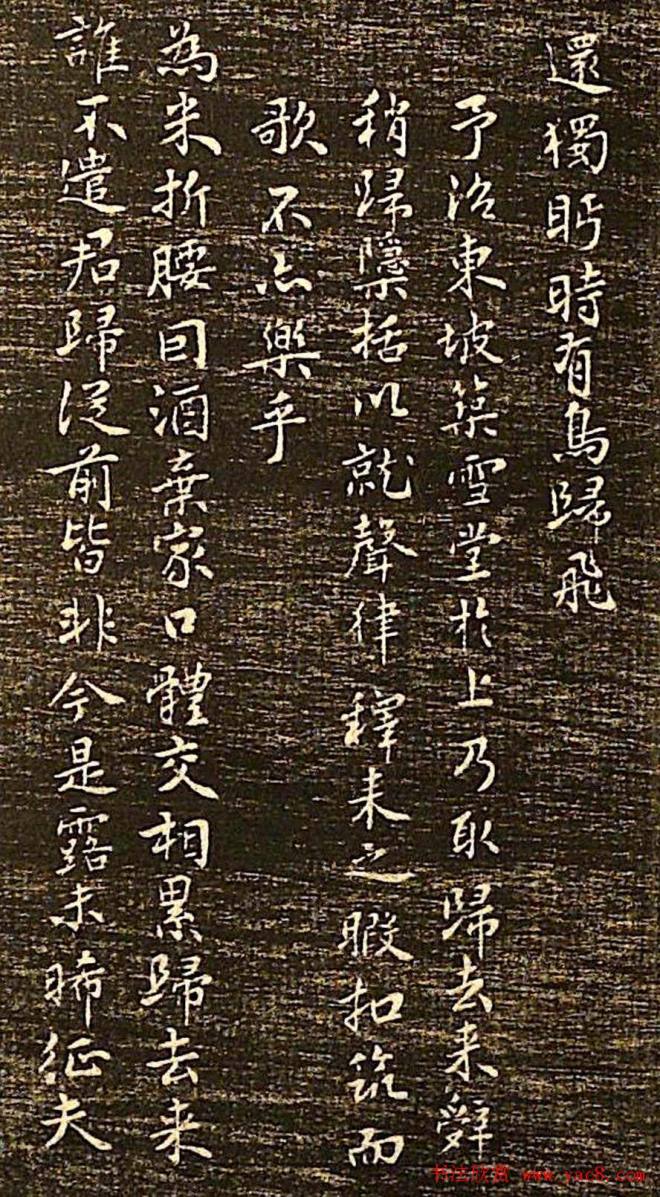 還獨眄時有鳥歸飛
予治東坡築雪堂於上乃取歸去来辤
稍歸檃括以就聲律釋耒之暇扣筑而
歌不亦樂乎
為米折腰曰酒棄家口體交相累歸去来
誰不遣君歸從前皆非今是露未晞征夫
书法欣赏 www.yac8.com